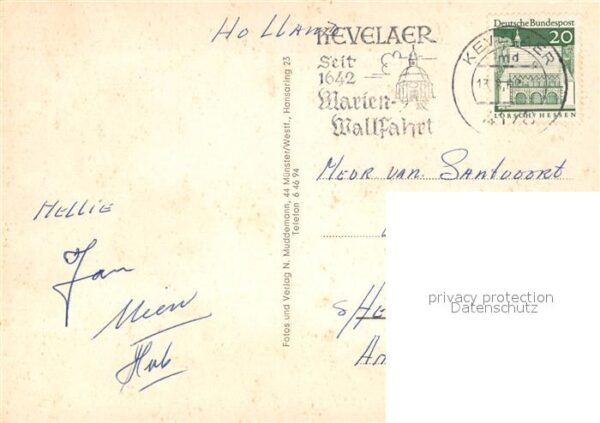 Holland
KEVELAER
Seit
1642
Marien-
Wallfahrt
Deutsche Bundespost
20
KEVELAER
md
LORSCH/HESSEN
Fotos und Verlag N. Muddemann, 44 Münster/Westf., Hansaring 23
Telefon 6 46 94
Meur van. Santvoort
Nellie
Jan
Mien
Hub
privacy protection
Datenschutz